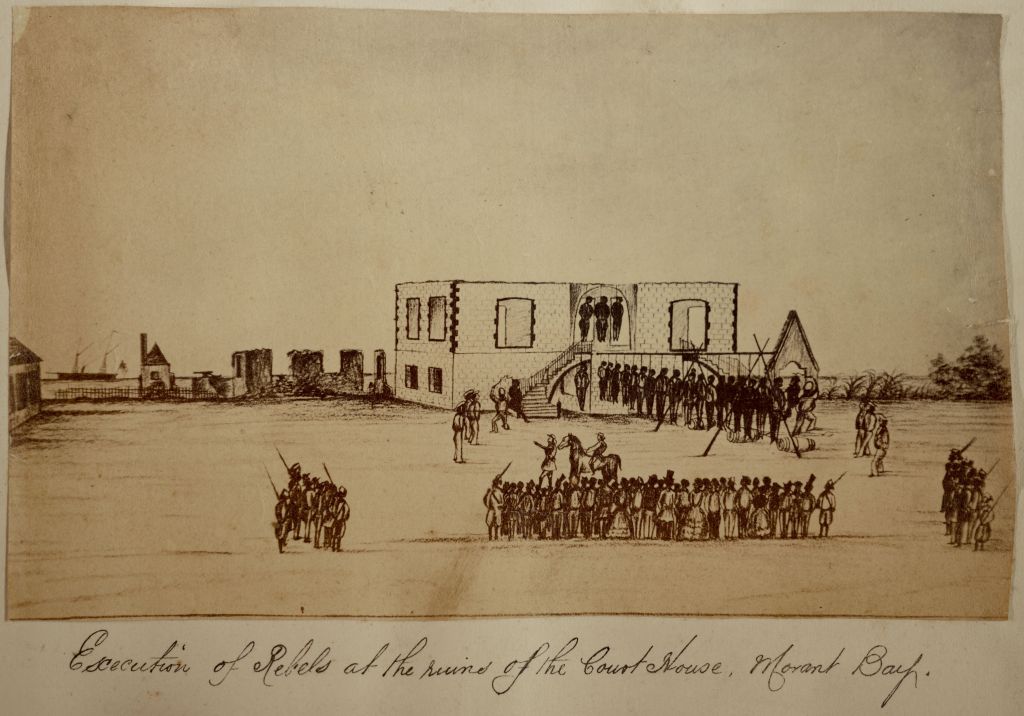 Execution of Rebels at the ruins of the Court House, Morant Bay.